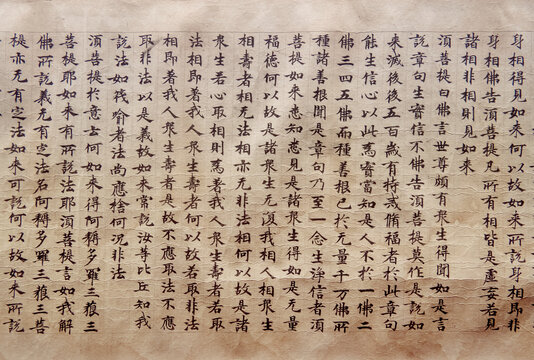 身相得見如来何以故如来所說身相即非
身相佛告湏菩提凡所有相皆是虛妄若見
諸相非相則見如来
湏菩提白佛言世尊頗有衆生得聞如是言
說章句生實信不佛告湏菩提莫作是說如
来滅後後五百歳有持戒脩福者於此章句
能生信心以此為實當知是人不於一佛二
佛三四五佛而種善根已於无量千万佛所
種諸善根聞是章句乃至一念生淨信者湏
菩提如来悉知悉見是諸衆生得如是无量
福德何以故是諸衆生无復我相人相衆生
相壽者相无法相亦无非法相何以故是諸
衆生若心取相則為著我人衆生壽者若取
法相即著我人衆生壽者何以故若取非法
相即著我人衆生壽者是故不應取法不應
取非法以是義故如来常說汝等比丘知我
說法如筏喻者法尚應捨何況非法
湏菩提於意云何如来得阿耨多羅三藐三
菩提耶如来有所說法耶湏菩提言如我解
佛所說義无有定法名阿耨多羅三藐三菩
提亦无有定法如来可說何以故如来所說